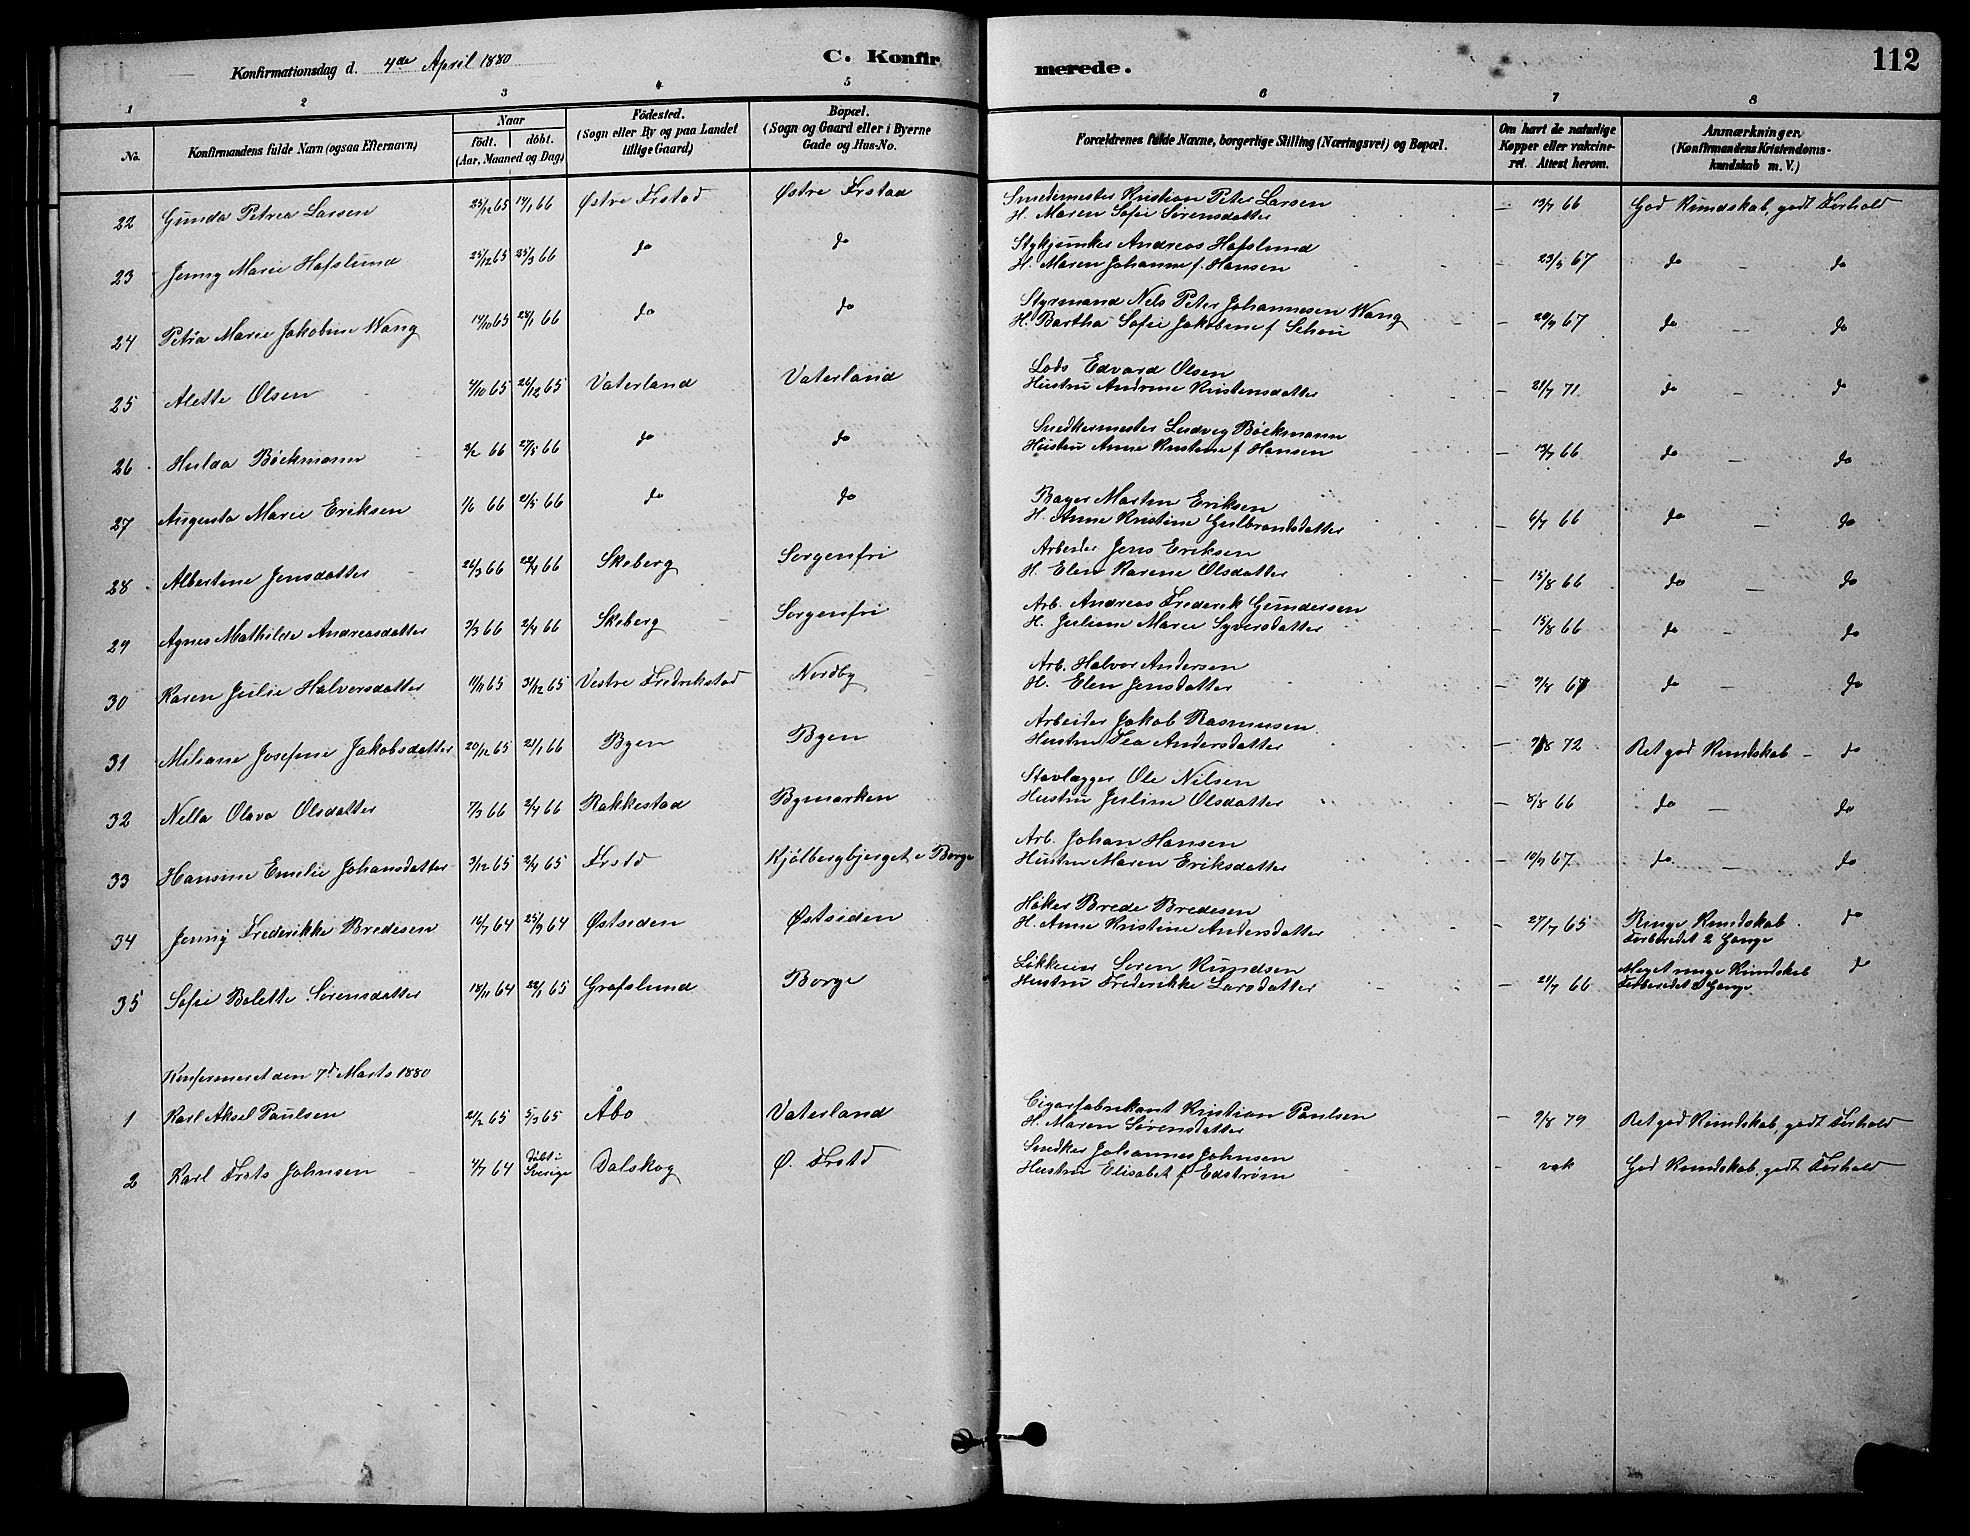 Konfirmationsdag d. 4de April 1880 C. Konfirmerede. 112
1 2 3 4 5 6 7 8
No.
Konfirmandens fulde Navn (ogsaa Efternavn)
Naar
födt. döbt.
(Aar, Maaned og Dag)
Födested.
(Sogn eller By og paa Landet
tillige Gaard)
Bopæl.
(Sogn og Gaard eller i Byerne
Gade og Hus-No.
Forældrenes fulde Navne, borgerlige Stilling (Næringsvei) og Bopæl.
Om havt de naturlige
Kopper eller vakcine-
ret. Attest herom.
Anmærkninger
(Konfirmandens Kristendoms-
kundskab m. V.)
Smedemester Kristian Peter Larsen
22 Gunda Petrea Larsen 25/12 65 14/1 66 Østre Frstad Østre Frstad H. Maren Sofie Sörensdatter – 13/7 66 God Kundskab, godt Forhold
Stykjunker Andreas Hafslund
23 Jenny Marie Hafslund 25/12 65 25/3 66 do do H. Maren Johanne f. Hansen – 23/5 67 do – do
Styrmand Nels Peter Johannesen Wang
24 Petra Marie Jakobine Wang 14/10 65 28/1 66 do do H. Bartha Sofie Jakobine f Schou – 20/9 67 do – do
Lods Edvard Olsen
25 Alette Olsen 4/10 65 26/12 65 Vaterland Vaterland Hustru Andrine Kristensdatter – 21/7 71 do – do
Snedkermester Ludvig Böckmann
26 Hulda Böckmann 3/2 66 27/5 66 do do Hustru Anne Kristine f Hansen – 13/7 66 do – do
Bager Martin Eriksen
27 Augusta Marie Eriksen 1/1 66 21/5 66 do do H. Anne Kristine Gulbrandsdatter – 6/7 66 do – do
Arbeider Jens Eriksen
28 Albertine Jensdatter 26/3 66 22/4 66 Skeberg Sorgenfri H. Elen Karine Olsdatter – 15/8 66 do do
Arb. Andreas Frederik Gundersen
29 Agnes Mathilde Andreasdatter 3/3 66 2/4 66 Skeberg Sorgenfri H. Juliane Marie Syversdatter – 15/8 66 do – do
Arb. Halvor Andersen
30 Karen Julie Halversdatter 11/11 65 31/12 65 Vestre Fredrikstad Nordby H. Elen Jensdatter – 9/8 67 do – do
Arbeider Jakob Rasmusen
31 Miliane Josefine Jakobsdatter 20/12 65 21/1 66 Byen Byen Hustru Tea Andersdatter – 9/8 72 Ret god Kundskab – do
Stavlægger Ole Nilsen
32 Nella Olava Olsdatter 7/3 66 2/4 66 Rakkestad Bymarken Hustru Juline Olsdatter – 8/8 66 do – do
Arb. Johan Hansen
33 Hansine Emilie Johansdatter 3/12 65 2/4 65 Frstd Kjölbergbjerget i Borge Hustru Maren Eriksdatter – 10/7 67 do – do
Höker Brede Bredesen
34 Jenny Frederikke Bredesen 16/7 64 25/9 64 Østsiden Østsiden H. Anne Kristine Andersdatter – 27/7 65 Ringe Kundskab. do
Forberedet 2 Gange
Lökkeeier Soren Kundsen
35 Sofie Bolette Sörensdatter 18/11 64 22/1 65 Grafslund Borge Hustru Frederikke Larsdatter – 21/7 66 Meget ringe Kundskab do
Forberedet 2 Gange
Konfermeret den 7d Marts 1880
Cigarfabrikant Kristian Paulsen
1 Karl Aksel Paulsen 21/2 65 5/3 65 Åbo Vaterland H. Maren Sörensdatter – 9/8 79 Ret god Kundskab, godt Forhold
Snedker Johannes Johnsen
2 Karl Frits Johnsen 4/7 64 Döbt i Sverige Dalskog Ø. Frstd Hustru Elisabet f Edström – vak God Kundskab, godt Forhold